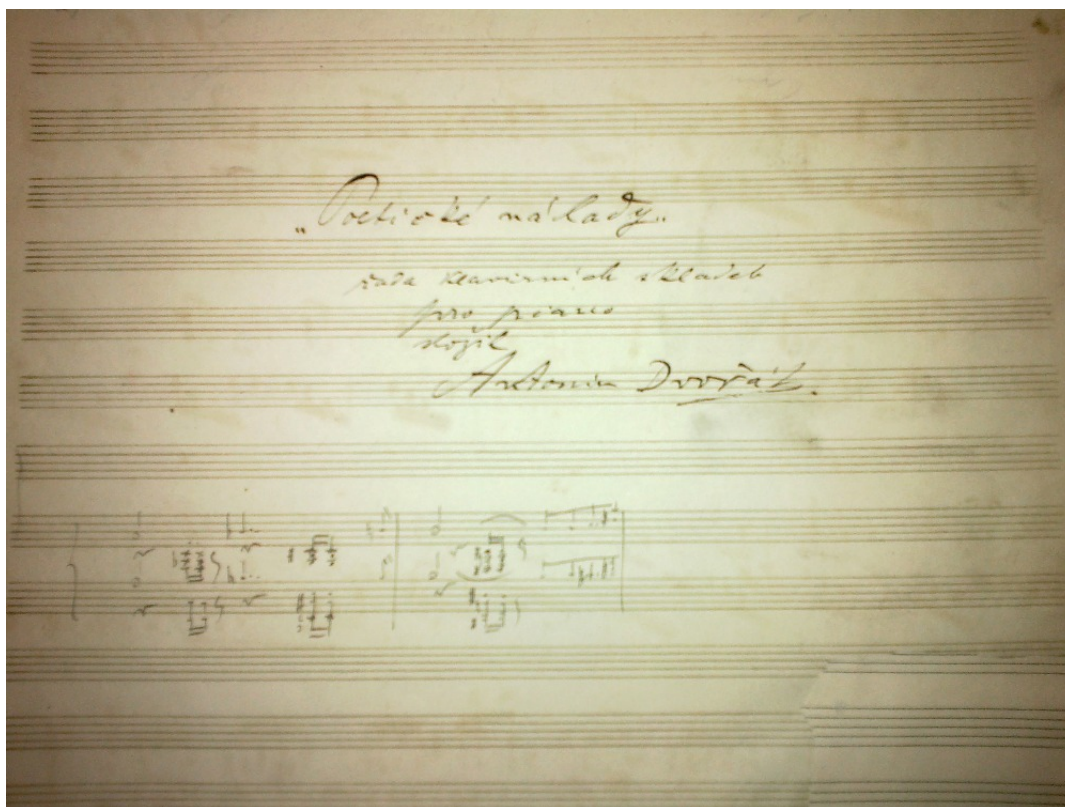 „Poetické nálady„
řada klavírních skladeb
pro piano
složil
Antonín Dvořák.